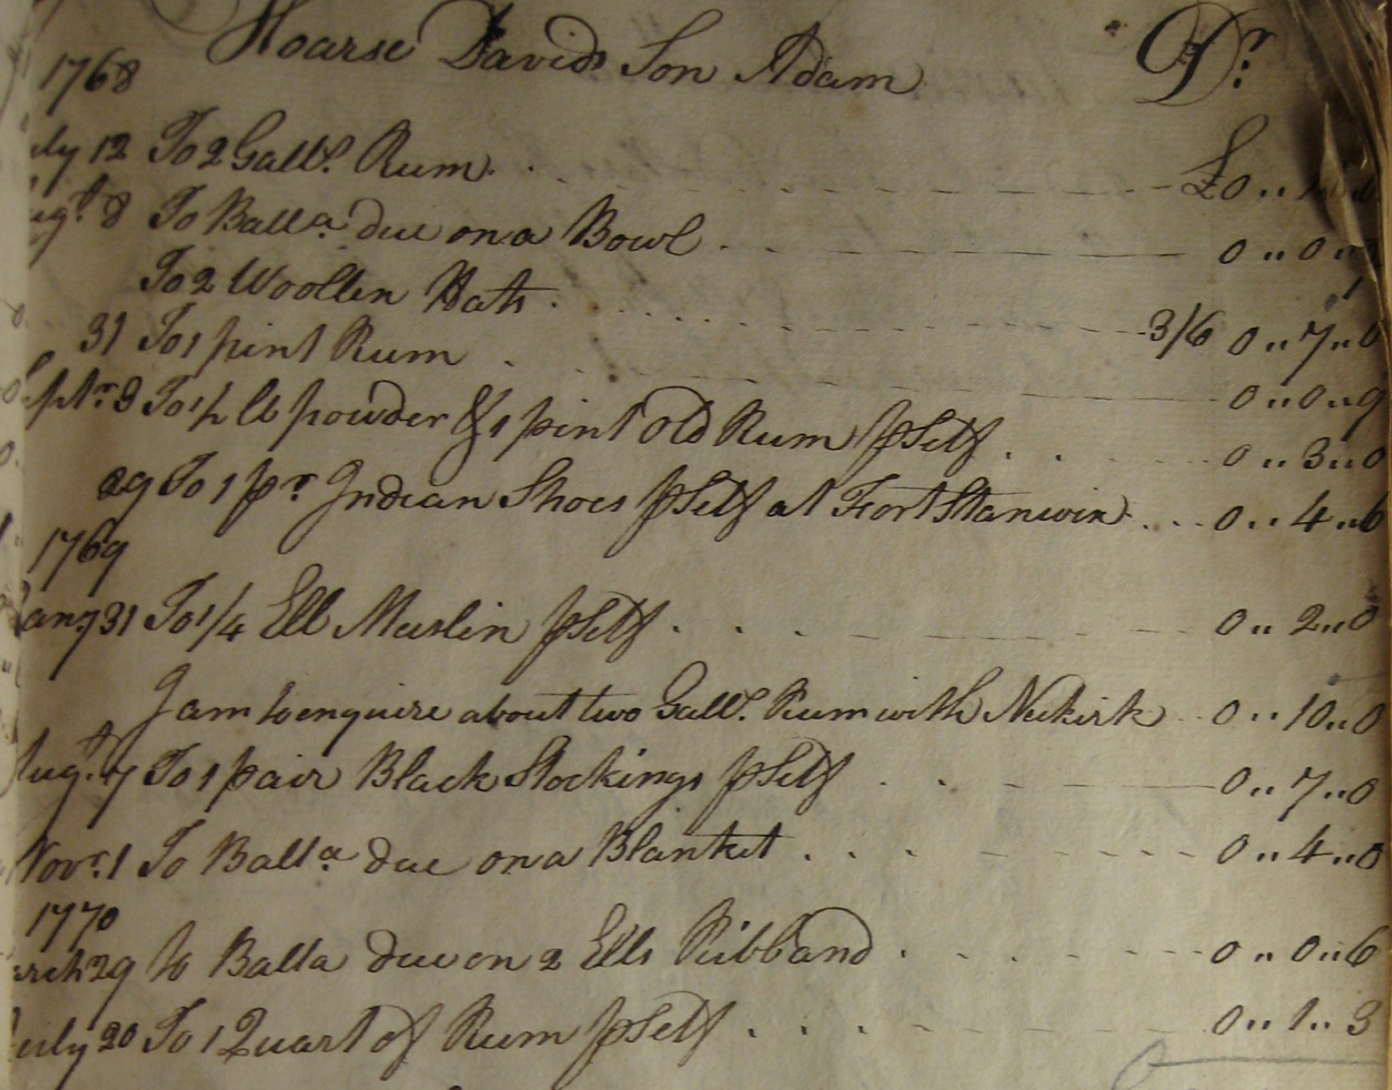 Hoarse Davids Son Adam Dr.
1768
July 12 To 2 Galls. Rum £0 ,,
Augt. 8 To Balla. due on a Bowl 0 ,, 0 ,,
To 2 Woollen Hats 3/6 0 ,, 7 ,, 0
31 To 1 pint Rum 0 ,, 0 ,, 9
Septr. 9 To 1/2 lb powder & 1 pint Old Rum pSelf 0 ,, 3 ,, 0
29 To 1 pr Indian Shoes pSelf at Fort Stanwix 0 ,, 4 ,, 6
1769
Jany 31 To 1/4 Ell Muslin pSelf 0 ,, 2 ,, 0
I am to enquire about two Galls. Rum with Nukirk 0 ,, 10 ,, 0
Augt. 7 To 1 pair Black Stockings pSelf 0 ,, 7 ,, 0
Novr. 1 To Balla. due on a Blanket 0 ,, 4 ,, 0
1770
March 29 to Balla due on 2 Ells Ribband 0 ,, 0 ,, 6
July 20 To 1 Quart of Rum pSelf 0 ,, 1 ,, 3